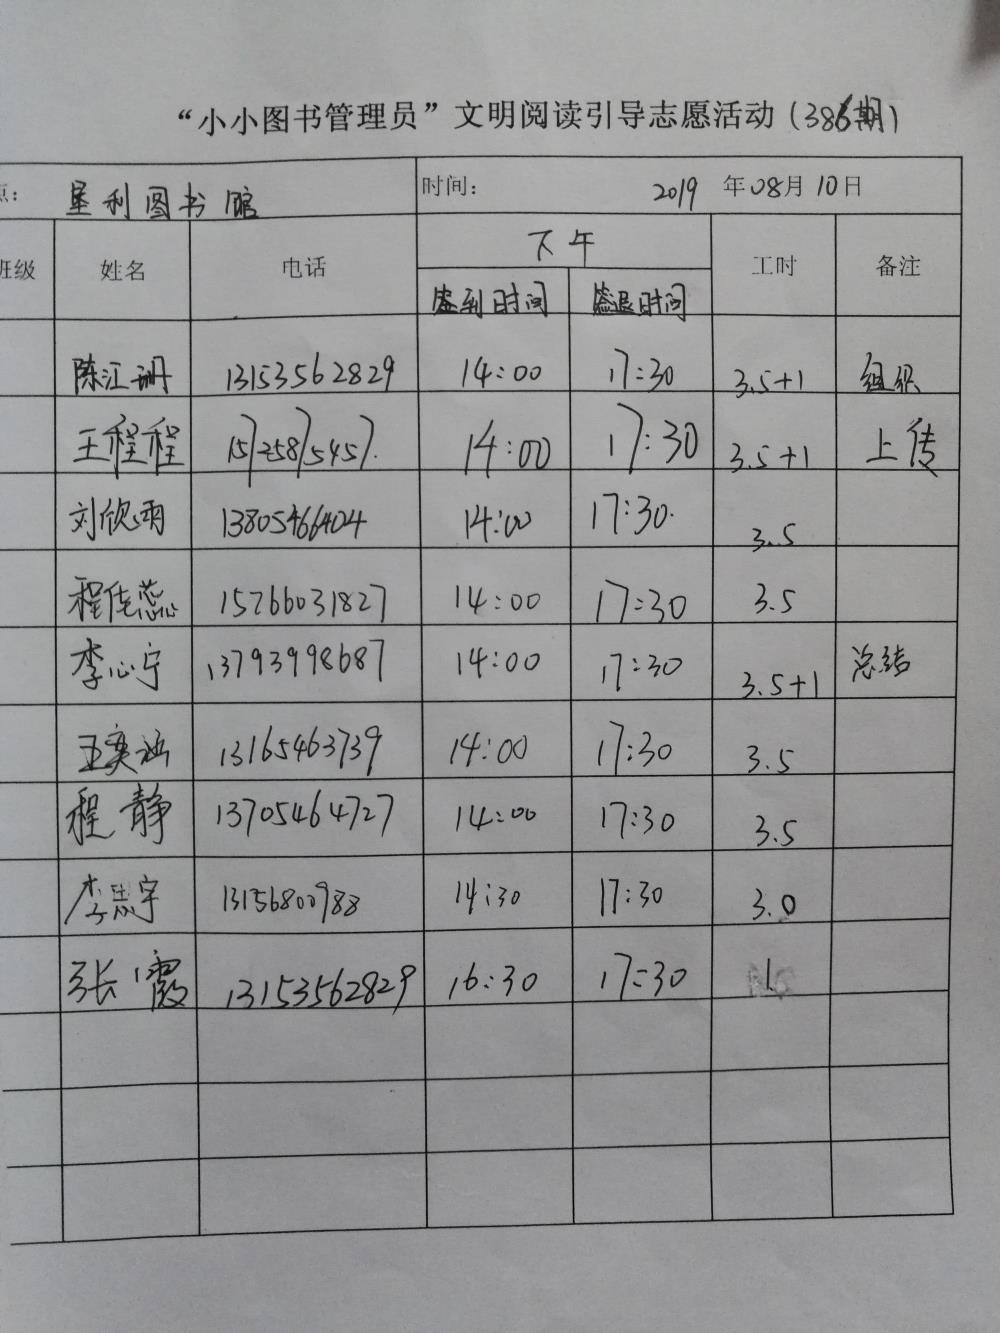 “小小图书管理员”文明阅读引导志愿活动(386期)
点: 垦利图书馆 时间: 2019 年08月10日
班级 姓名 电话 下午 工时 备注
签到时间 签退时间
陈江珊 13153562829 14:00 17:30 3.5+1 组织
王程程 15725875457. 14:00 17:30 3.5+1 上传
刘欣雨 13805466404 14:00 17:30. 3.5
程佳蕊 15266031827 14:00 17:30 3.5
李心宁 13793998687 14:00 17:30 3.5+1 总结
王奕涵 13165463739 14:00 17:30 3.5
程静 13705464727 14:00 17:30 3.5
李思宇 13156800988 14:30 17:30 3.0
张霞 13153562829 16:30 17:30 1